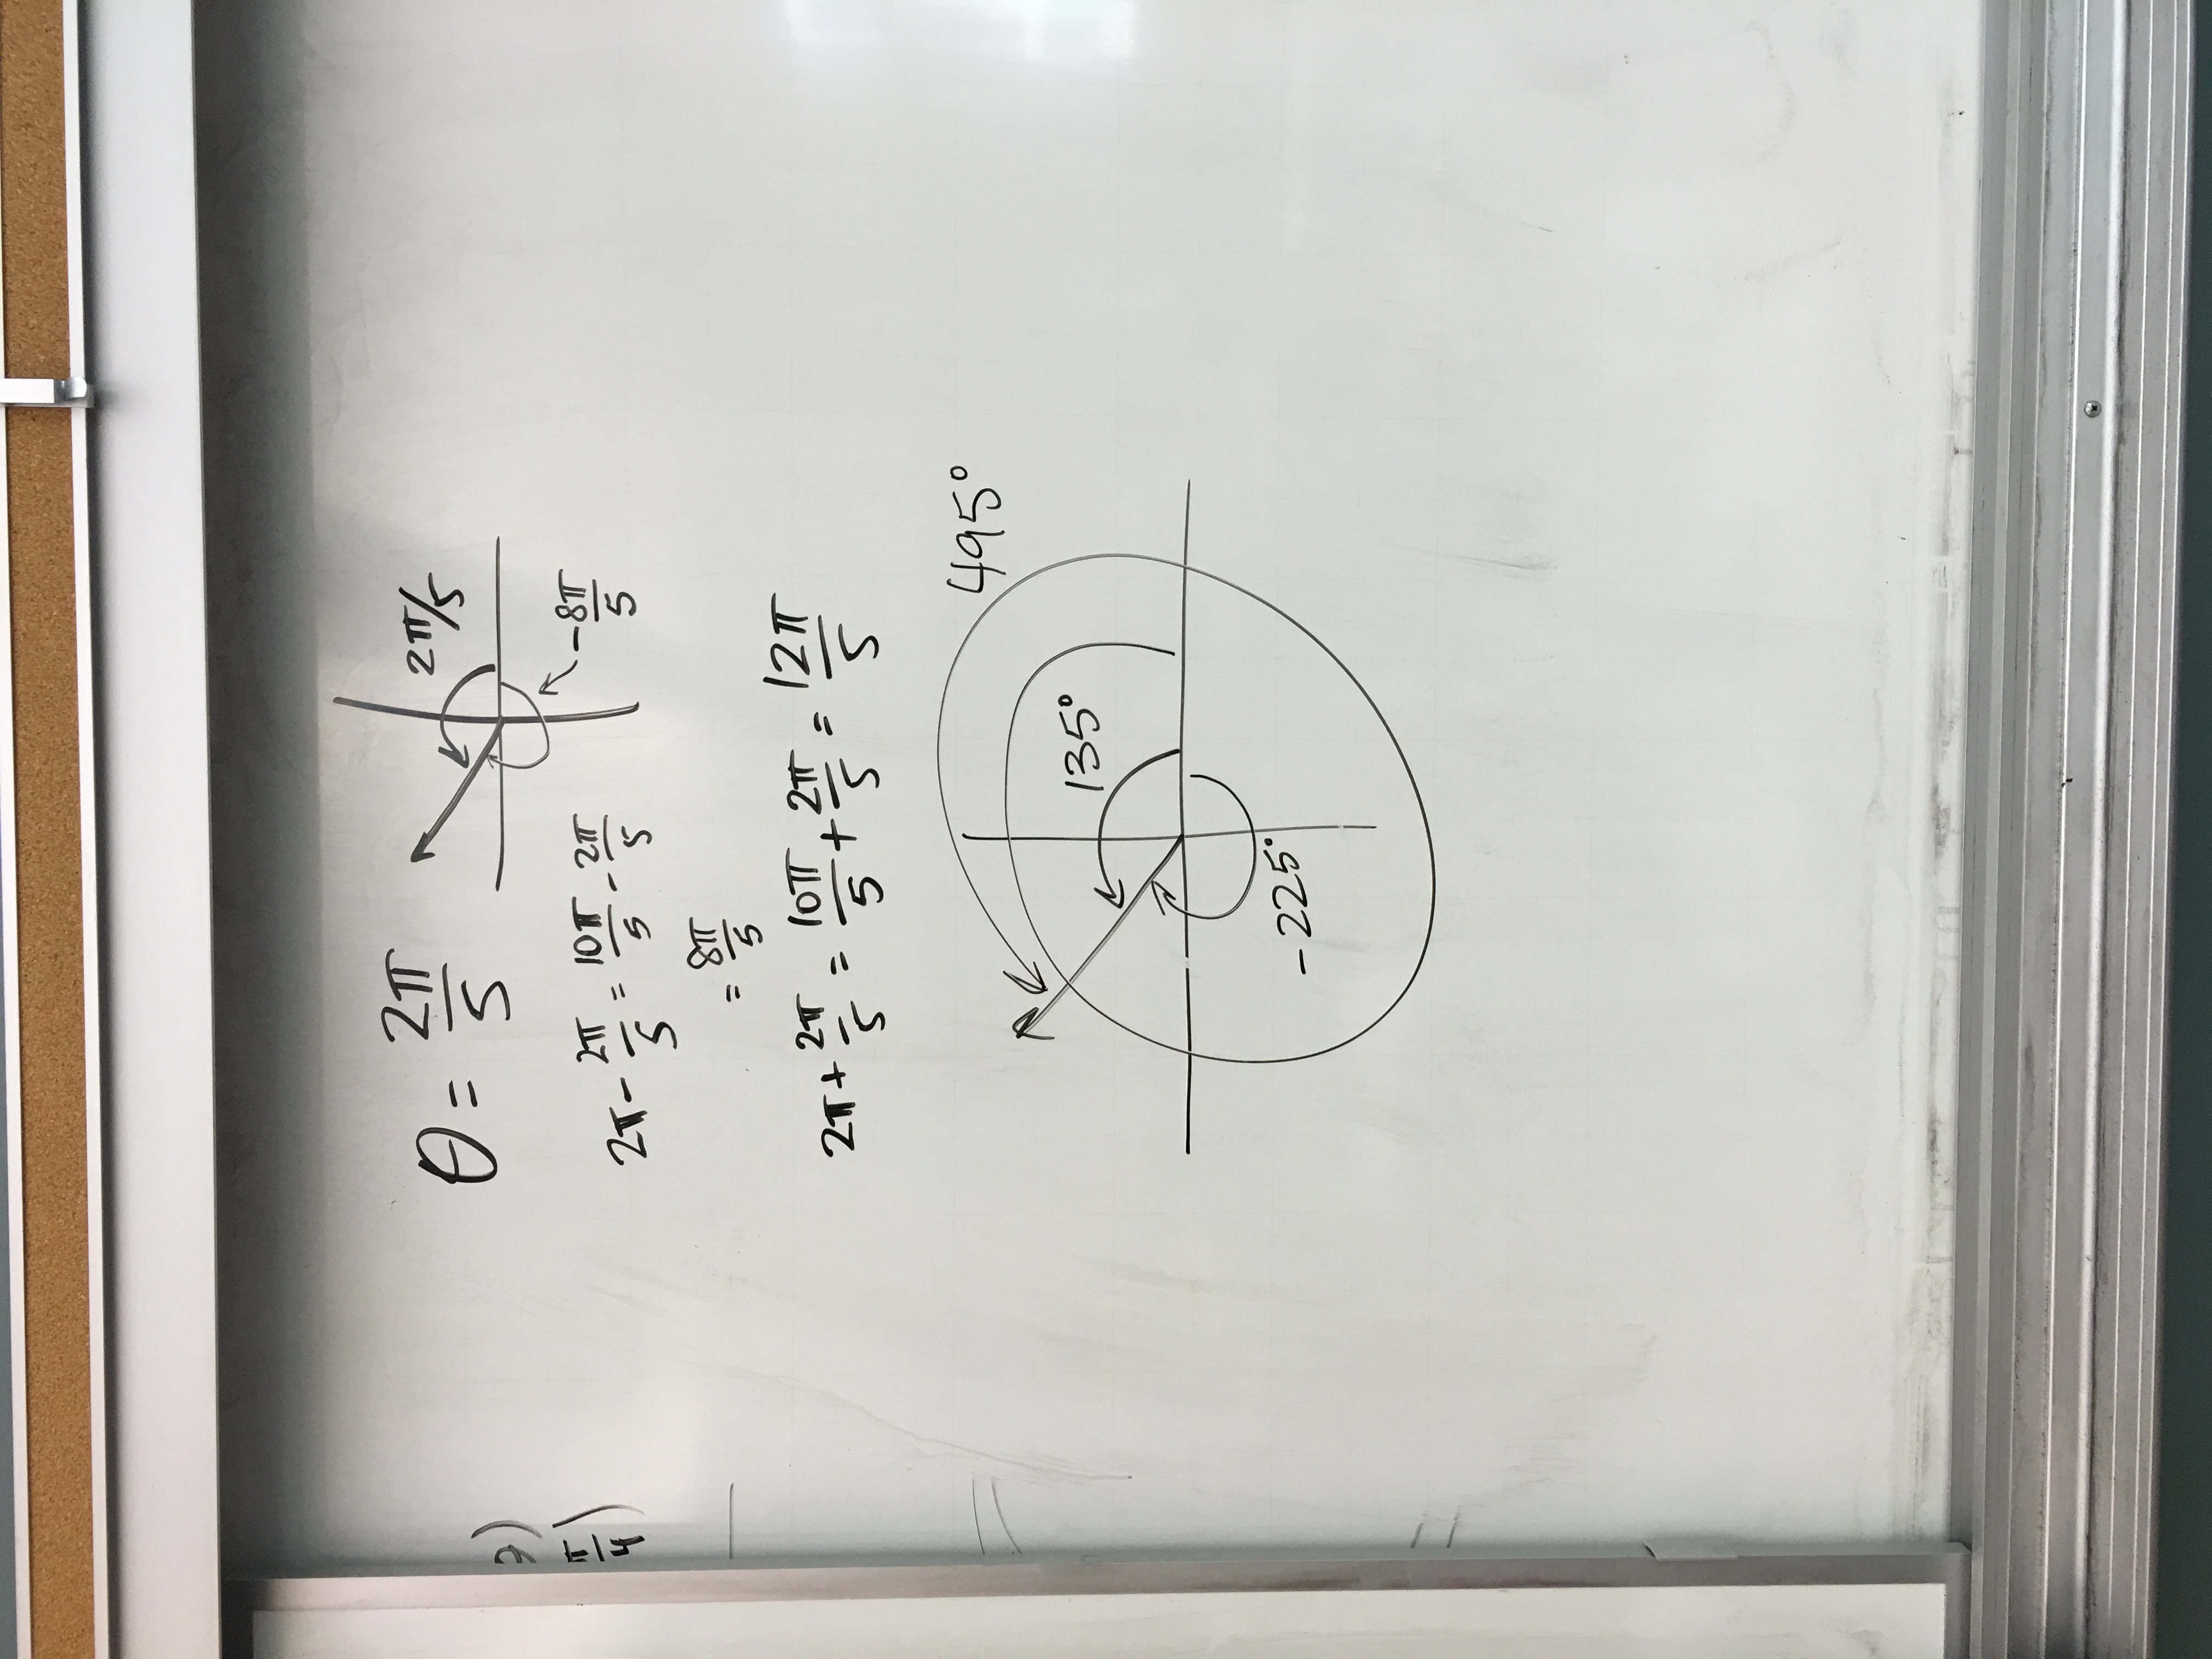 θ = 2π/5
2π/5
-8π/5
2π - 2π/5 = 10π/5 - 2π/5
= 8π/5
2π + 2π/5 = 10π/5 + 2π/5 = 12π/5
495°
135°
-225°
π/4)